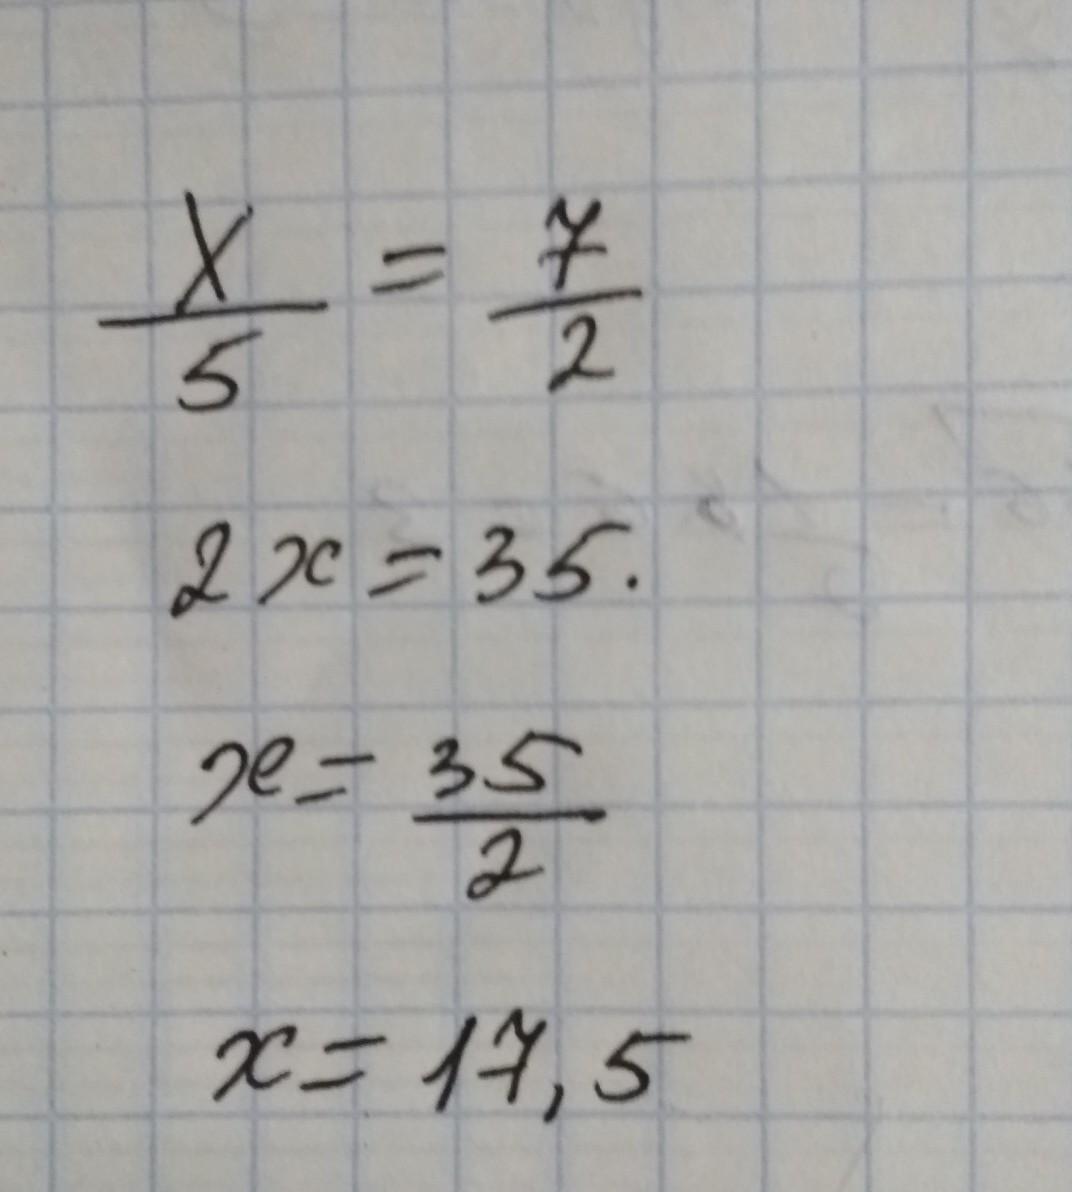 x/5 = 7/2
2x = 35.
x = 35/2
x = 17,5